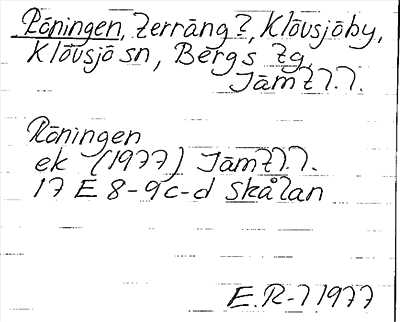 Röningen, terräng?, Klövsjöby,
Klövsjö sn, Bergs tg,
Jämtl.
Röningen
ek (1977) Jämtl.
17 E 8-9c-d Skålan
E.R-l 1977